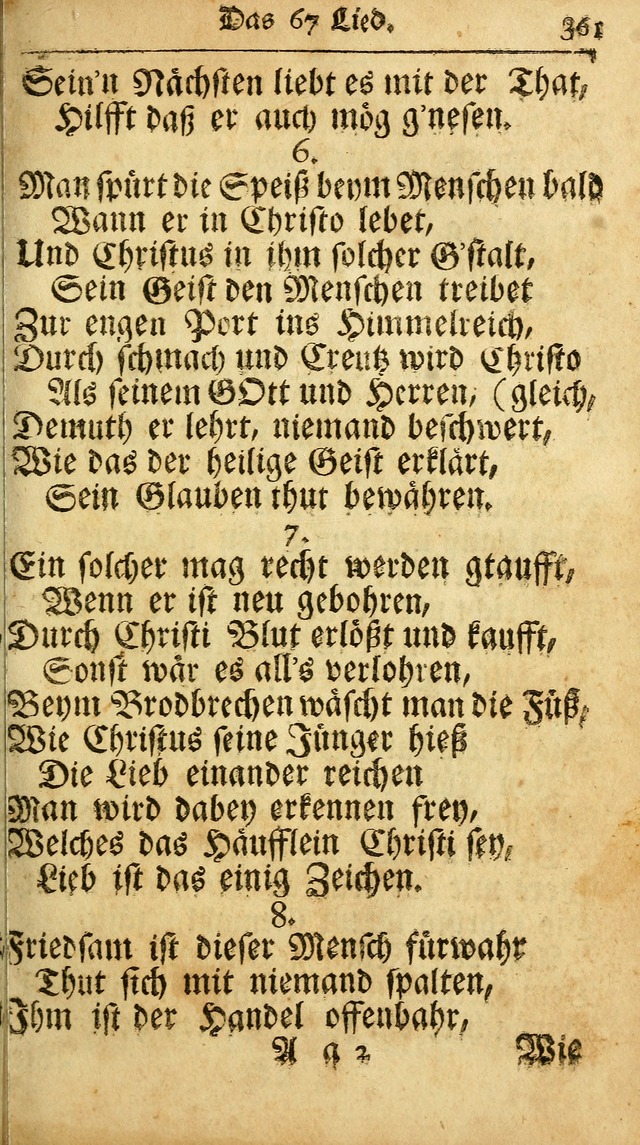 Das 67 Lied. 361
Sein'n Nächsten liebt es mit der That,
Hilfft daß er auch mög g'nesen.
6.
Man spürt die Speiß beym Menschen bald
Wann er in Christo lebet,
Und Christus in ihm solcher G'stalt,
Sein Geist den Menschen treibet
Zur engen Port ins Himmelreich,
Durch schmach und Creutz wird Christo
Als seinem GOtt und Herren, (gleich,
Demuth er lehrt, niemand beschwert,
Wie das der heilige Geist erklärt,
Sein Glauben thut bewähren.
7.
Ein solcher mag recht werden gtaufft,
Wenn er ist neu gebohren,
Durch Christi Blut erlößt und kaufft,
Sonst wär es all's verlohren,
Beym Brodbrechen wäscht man die Füß,
Wie Christus seine Jünger hieß
Die Lieb einander reichen
Man wird dabey erkennen frey,
Welches das Häufflein Christi sey,
Lieb ist das einig Zeichen.
8.
Friedsam ist dieser Mensch fürwahr
Thut sich mit niemand spalten,
Ihm ist der Handel offenbahr,
A q 2 Wie